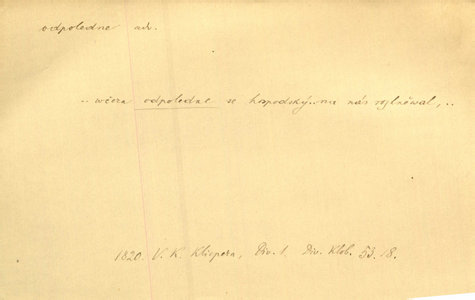 odpoledne adv.
.. včera odpoledne se hospodský .. na nás rozhněval, ..
1820 V. K. Klicpera, Div. 1. Div. Klob. 53. 18.